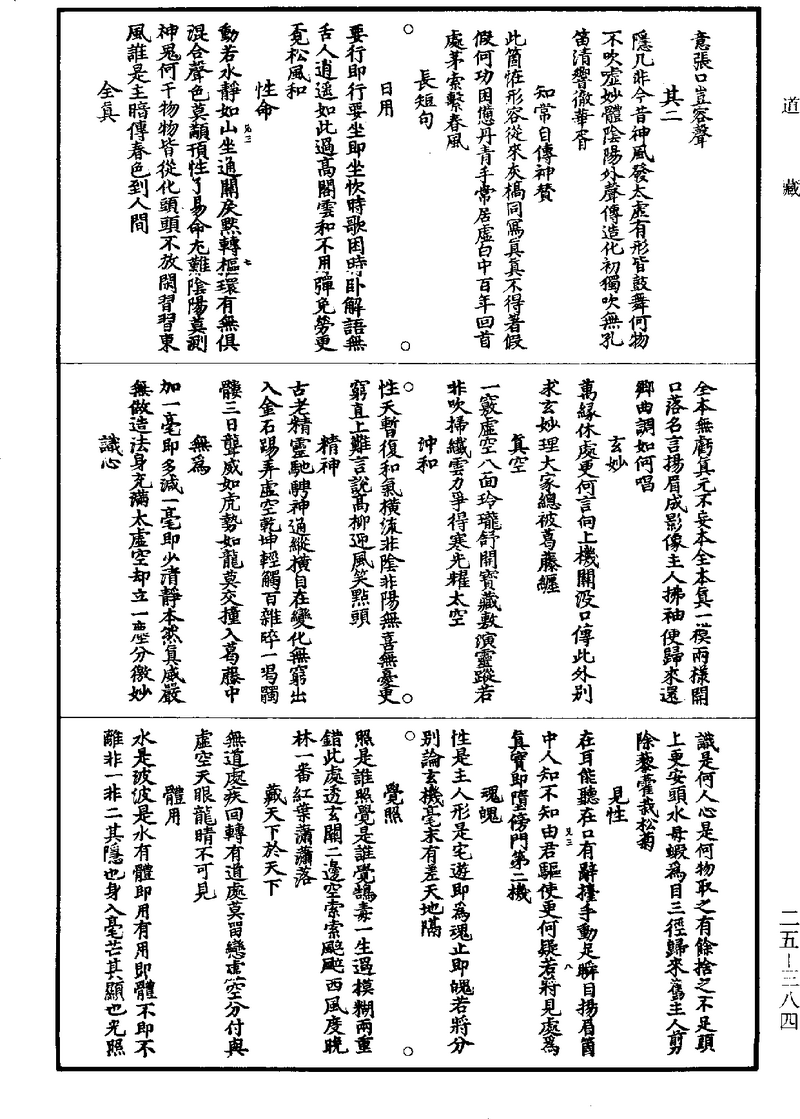 道藏
意張口豈容聲
其二
隱几非今昔神風發太虛有形皆鼓舞何物
不吹噓妙體陰陽外聲傳造化初獨吹無孔
笛清響徹華胥
知常自傳神贊
此箇恠形容從來灰槁同寫真真不得著假
假何功因憊丹青手常居虛白中百年回首
處茅索繫春風
長短句
日用
要行即行要坐即坐忺時歌困時臥解語無
舌人逍遥如此過高閣雲和不用彈免勞更
覓松風和
性命
動若水靜如山坐通關戾㸃轉樞環有無俱
混合聲色莫顢頇性了易命尤難陰陽莫測
神鬼何干物物皆從化頭頭不放閑習習東
風誰是主暗傳春色到人間
全真
全本無虧真元不妄本全本真一模兩樣開
口落名言揚眉成影像主人拂袖便歸來還
鄉曲調如何唱
玄妙
萬緣休處更何言向上機關沒口傳此外別
求玄妙理大家總被葛藤纏
真空
一竅虛空八面玲瓏舒開寶藏敷演靈蹤若
非吹掃纖雲力爭得寒光耀太空
沖和
性天暫復和氣橫流非陰非陽無喜無憂更
窮直上難言說髙柳迎風笑點頭
精神
古老精靈馳騁神通縱橫自在變化無窮出
入金石踢弄虛空乾坤輕觸百雜碎一喝髑
髏三日聾威如虎勢如龍莫交撞入葛藤中
無爲
加一毫即多減一毫即少清靜本然真威嚴
無做造法身充滿太虛空却立一塵分微妙
識心
識是何人心是何物取之有餘捨之不足頭
上更安頭水母蝦爲目三徑歸來舊主人剪
除藜藿栽松菊
見性
在耳能聽在口有辭擡手動足瞬目揚眉箇
中人知不知由君驅使更何疑若將見處爲
真實即墮傍門第二機
魂魄
性是主人形是宅遊即爲魂止即魄若將分
別論玄機毫末有差天地隔
覺照
照是誰照覺是誰覺鴆毒一生過模糊兩重
錯此處透玄關二邊空索索颼颼西風度晚
林一番紅葉蕭蕭落
藏天下於天下
無道處疾回轉有道處莫留戀虛空分付與
虛空天眼龍睛不可見
體用
水是波波是水有體即用有用即體不即不
離非一非二其隱也身入毫芒其顯也光照
二五—三八四